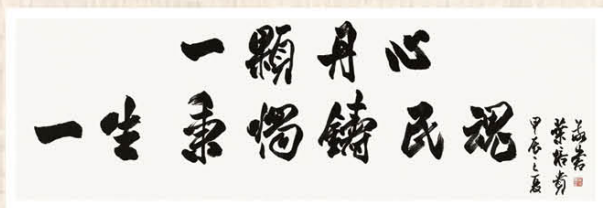 一顆丹心
一生秉燭鑄民魂
甲辰之夏